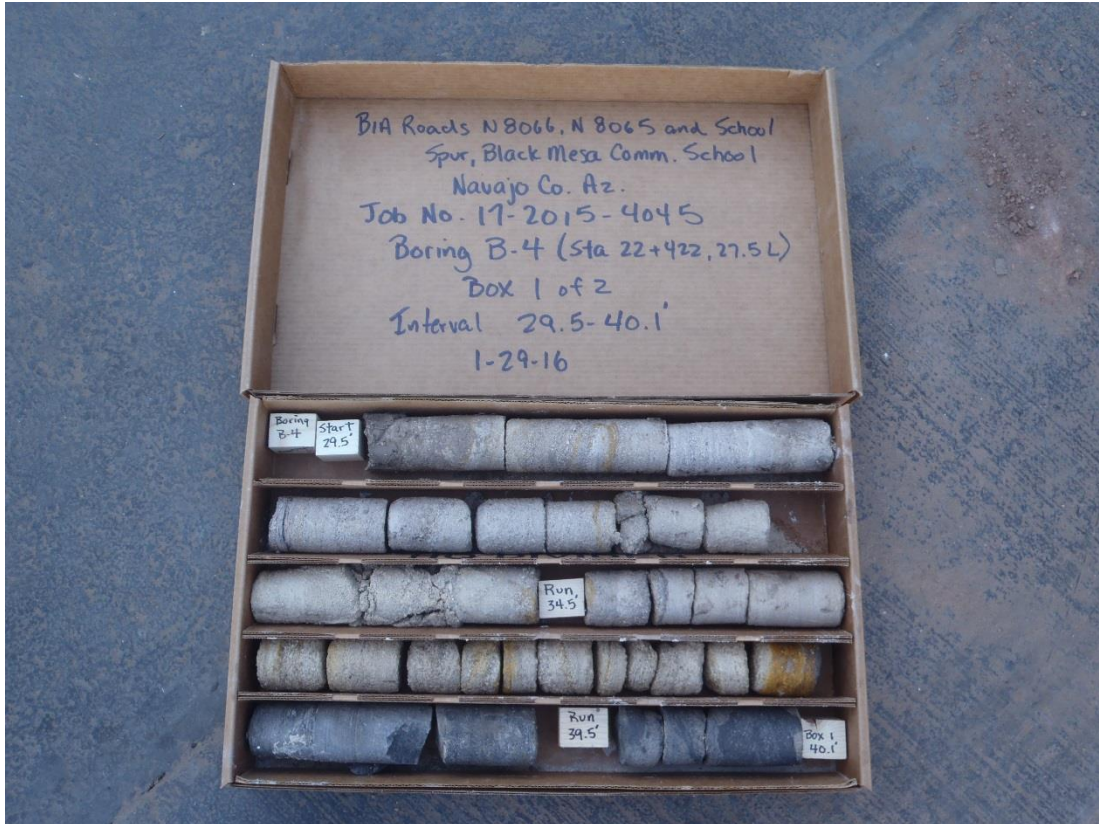 BIA Roads N8066, N8065 and School
Spur, Black Mesa Comm. School
Navajo Co. Az.
Job No. 17-2015-4045
Boring B-4 (Sta 22+422, 27.5 L)
Box 1 of 2
Interval 29.5-40.1'
1-29-16
Boring
B-4
Start
29.5'
Run
34.5'
Run
39.5'
Box 1
40.1'